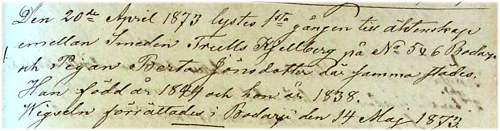 Den 20de April 1873 lystes 1sta gången till äktenskap
emellan Smeden Truells Kjellberg på No 5 & 6 Bodarp
och Pigan Berta Jönsdotter därsammastades.
Han född år 1844 och hon år 1838.
Wigseln förrättades i Bodarp den 14 Maj 1873.